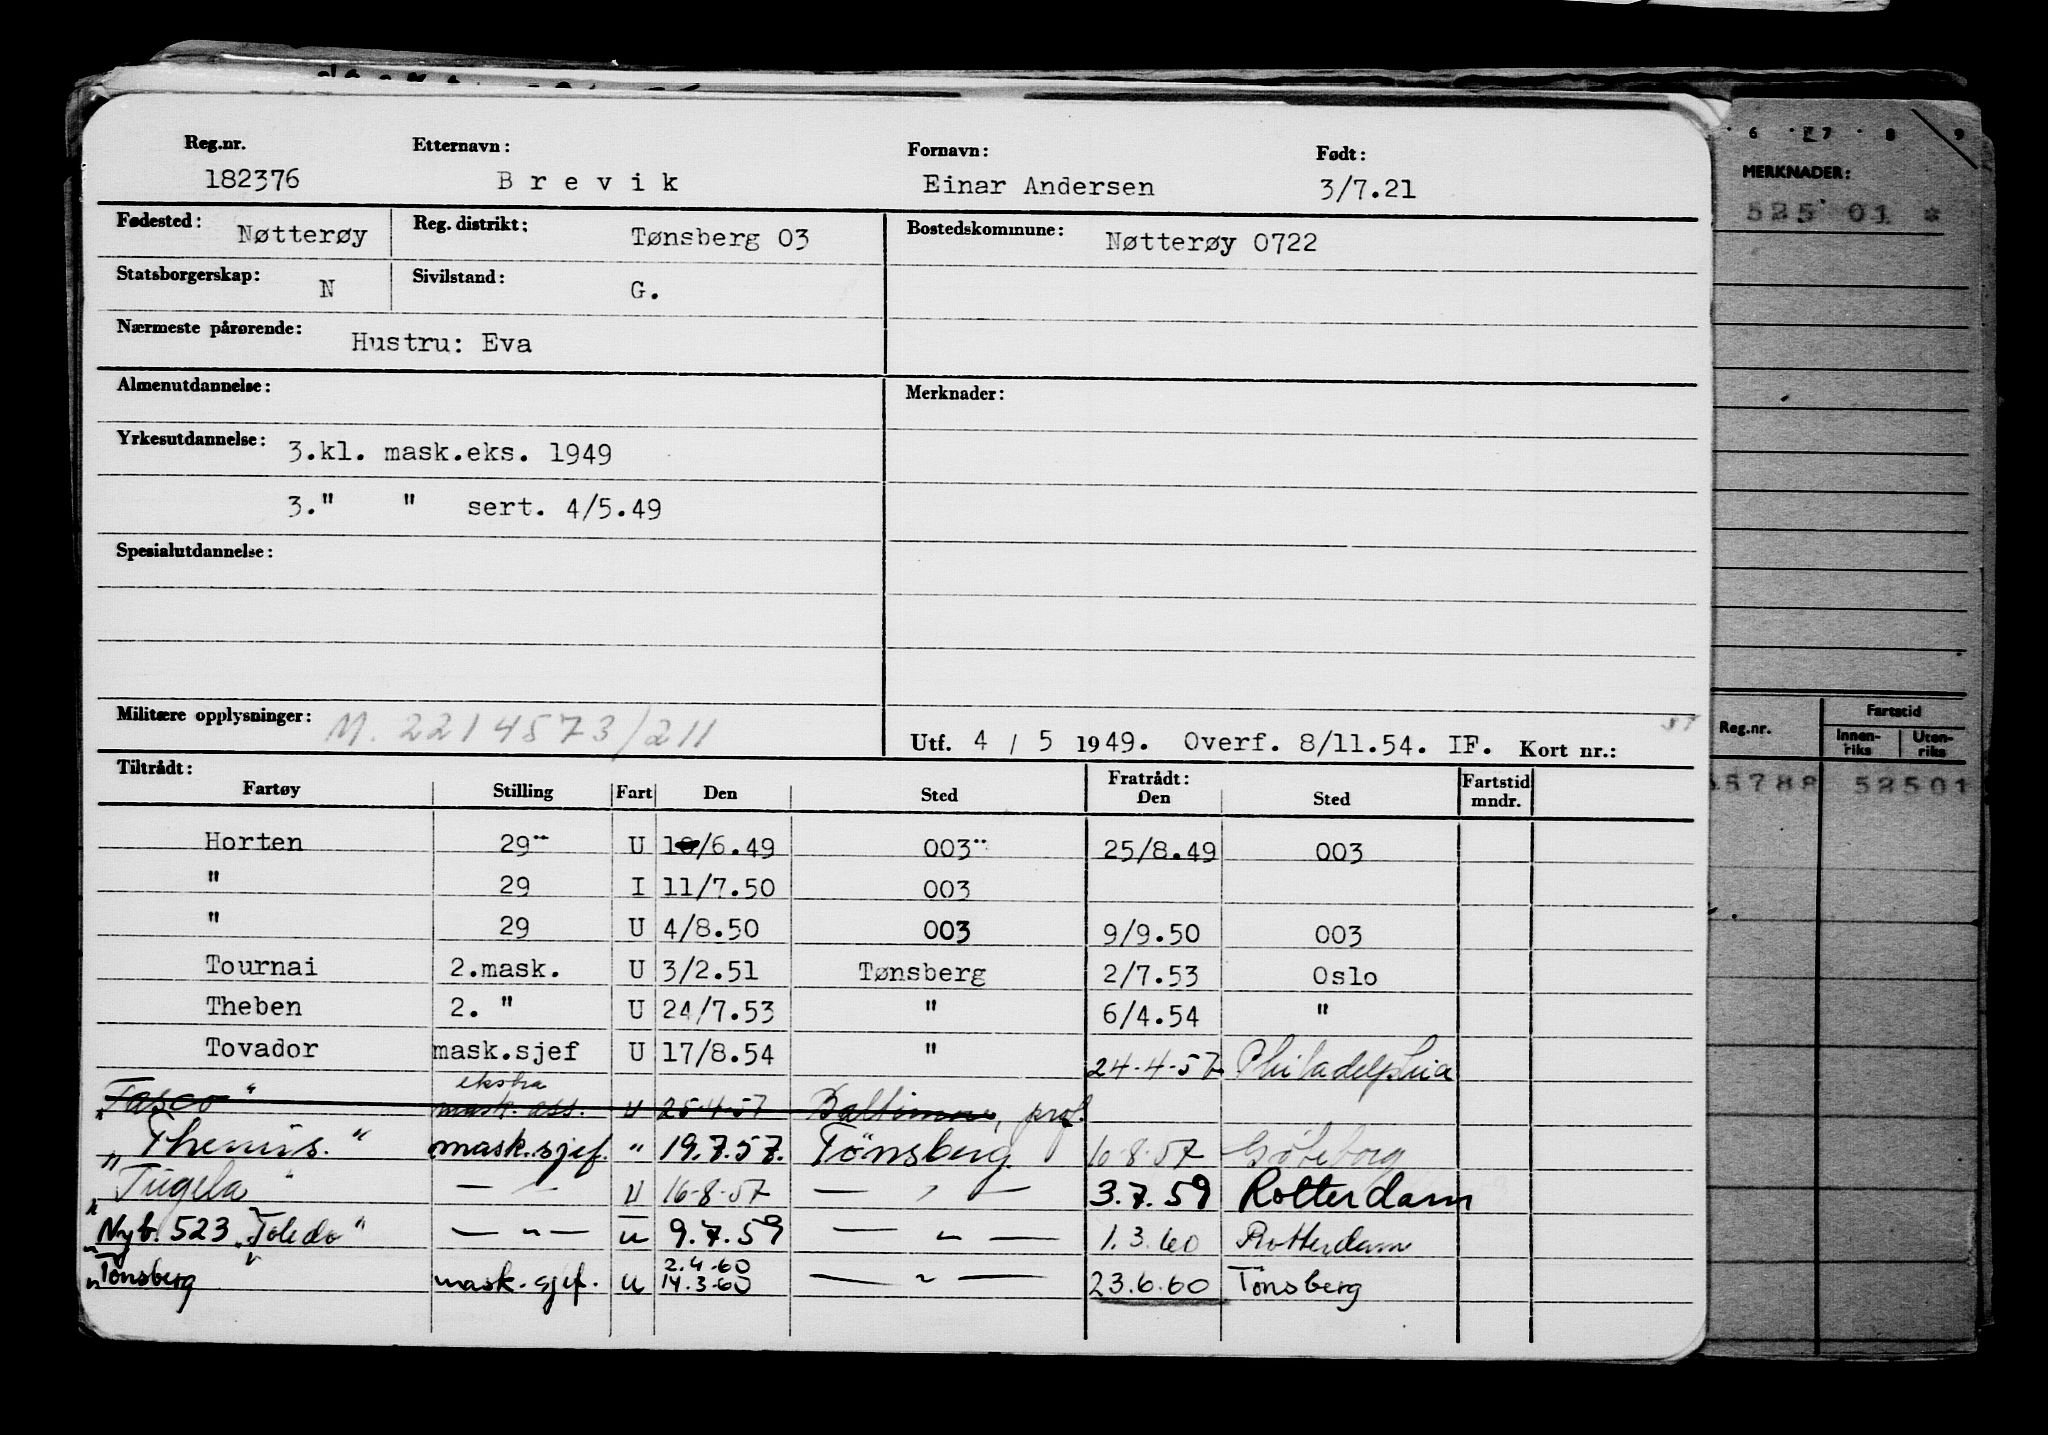 6 7 8 9
MERKNADER:
525 01 *
Reg.nr. Etternavn: Fornavn: Født:
182376 Brevik Einar Andersen 3/7.21
Fødested: Nøtterøy Reg. distrikt: Tønsberg 03 Bostedskommune: Nøtterøy 0722
Statsborgerskap: N Sivilstand: G.
Nærmeste pårørende: Hustru: Eva
Almenutdannelse: Merknader:
Yrkesutdannelse: 3.kl. mask.eks. 1949
3." " sert. 4/5.49
Spesialutdannelse:
Militære opplysninger: M. 2214573/211 Utf. 4 / 5 1949. Overf. 8/11.54. IF. Kort nr.:
Reg.nr. Fartstid
Innen-riks Uten-riks
5788 52501
Tiltrådt: Fratrådt: Fartstid
Fartøy Stilling Fart Den Sted Den Sted mndr.
Horten 29 U 10/6.49 003 25/8.49 003
" 29 I 11/7.50 003
" 29 U 4/8.50 003 9/9.50 003
Tournai 2.mask. U 3/2.51 Tønsberg 2/7.53 Oslo
Theben 2. " U 24/7.53 " 6/4.54 "
Tovador mask.sjef U 17/8.54 " 24-4-57 Philadelphia
ekstra
"Tasco" mask. ass. U 25-4-57 Baltimore, prof.
"Themis." mask.sjef. " 19.7.57. Tönsberg 16-8-57 Göteborg
"Tugela" — " — U 16-8-57 — " — 3.7.59 Rotterdam
Nyb. 523 "Toledo" — " — u 9.7.59 — " — 1.3.60 Rotterdam
2.4.60
"Tönsberg mask.sjef. u 14.3.60 — " — 23.6.60 Tönsberg